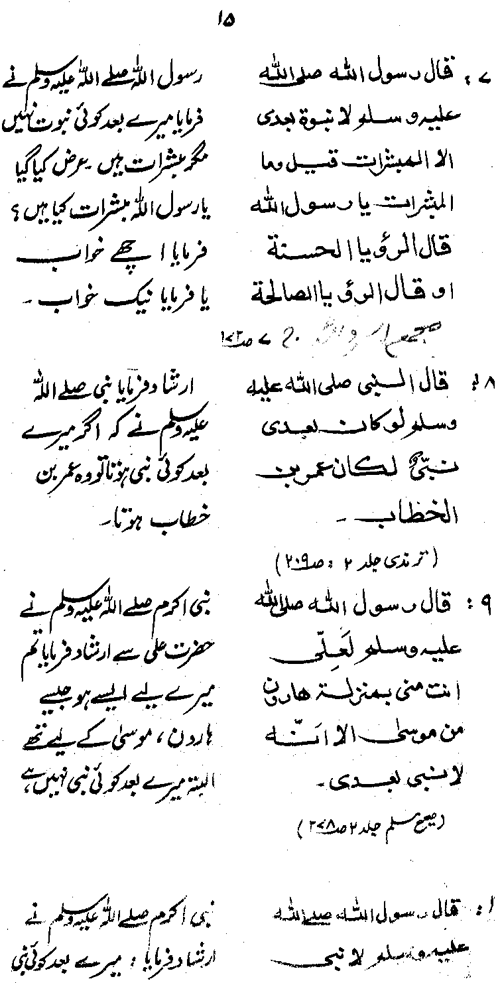 ۱۵
۷: قال رسول الله صلى الله
عليه وسلم لا نبوة بعدى
الا المبشرات قيل وما
المبشرات يا رسول الله
قال الرؤيا الحسنة
او قال الرؤيا الصالحة
رسول اللہ صلے اللہ علیہ وسلم نے
فرمایا میرے بعد کوئی نبوت نہیں
مگر مبشرات ہیں عرض کیا گیا
یا رسول اللہ مبشرات کیا ہیں؟
فرمایا اچھے خواب
یا فرمایا نیک خواب ۔
ج ۷ صـ۱۷۳
۸: قال النبى صلى الله عليه
وسلم لو كان بعدى
نبىٌّ لكان عمر بن
الخطاب ۔
(ترمذی جلد ۲ : صـ۲۰۹)
ارشاد فرمایا نبی صلے اللہ
علیہ وسلم نے کہ اگر میرے
بعد کوئی نبی ہوتا تو وہ عمر بن
خطاب ہوتا۔
۹: قال رسول الله صلى الله
عليه وسلم لعلّى
انت منى بمنزلة هارون
من موسى الا انّه
لا نبى بعدى۔
(صحیح مسلم جلد ۲ صـ۲۷۸)
نبی اکرم صلے اللہ علیہ وسلم نے
حضرت علی سے ارشاد فرمایا تم
میرے لیے ایسے ہو جیسے
ہارون، موسیٰ کے لیے تھے
البتہ میرے بعد کوئی نبی نہیں ہے
قال رسول الله صلے الله
عليه وسلم لا نبى
نبی اکرم صلے اللہ علیہ وسلم نے
ارشاد فرمایا : میرے بعد کوئی نبی